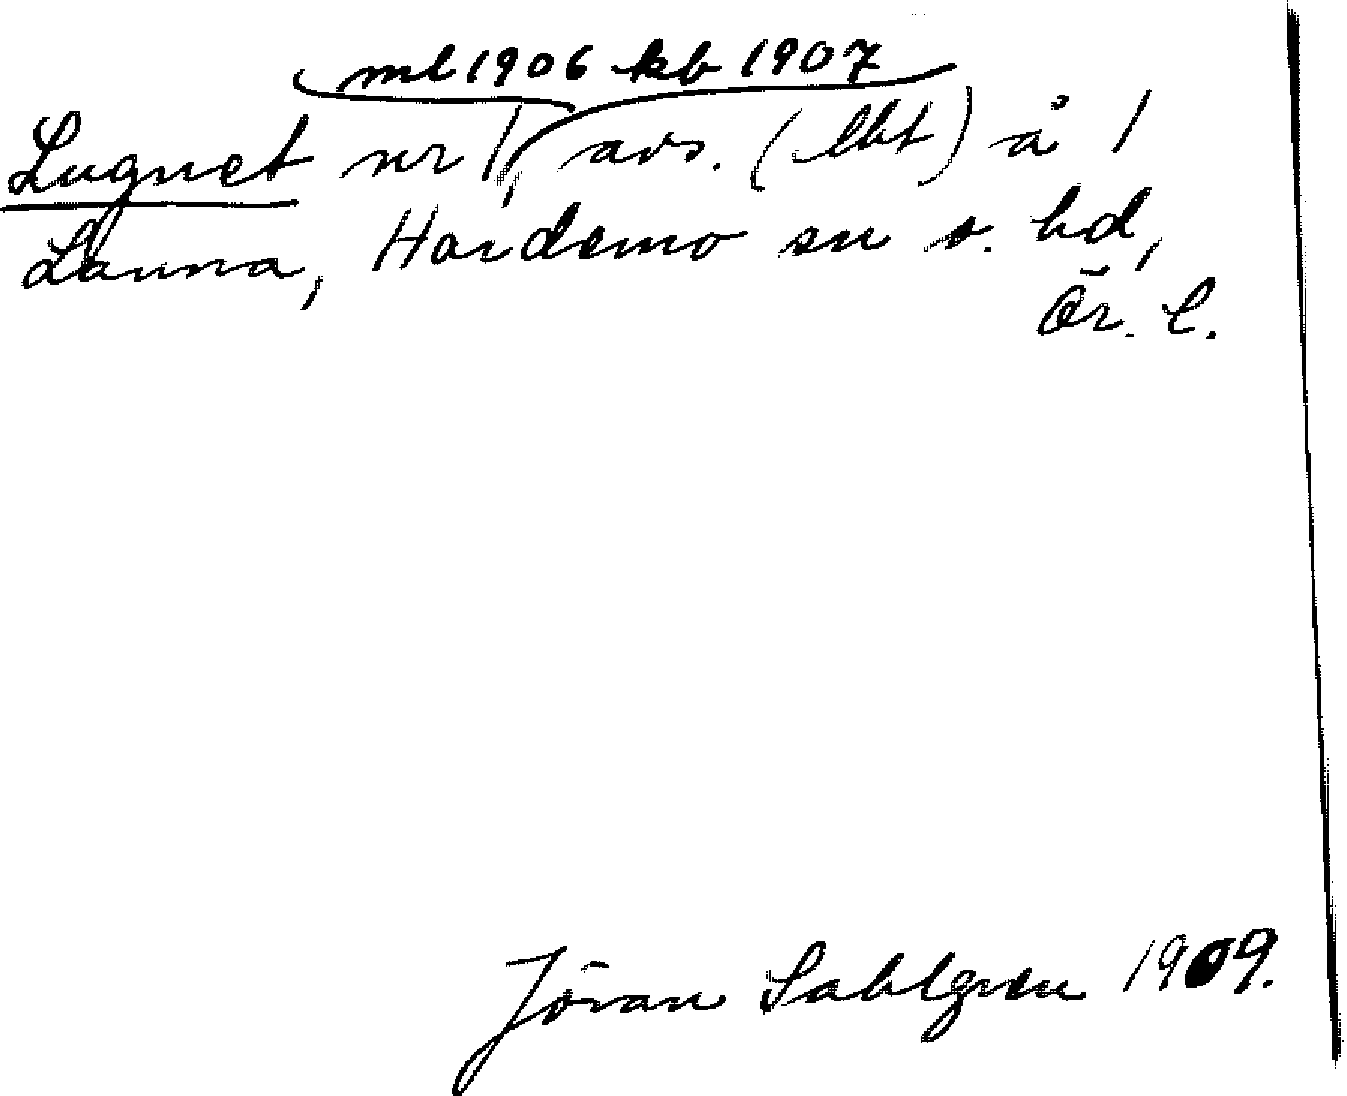 ml 1906 kb 1907
Lugnet nr 1, avs. (lht) å 1
Lanna, Hardemo sn o. hd,
Ör. l.
Jöran Sahlgren 1909.